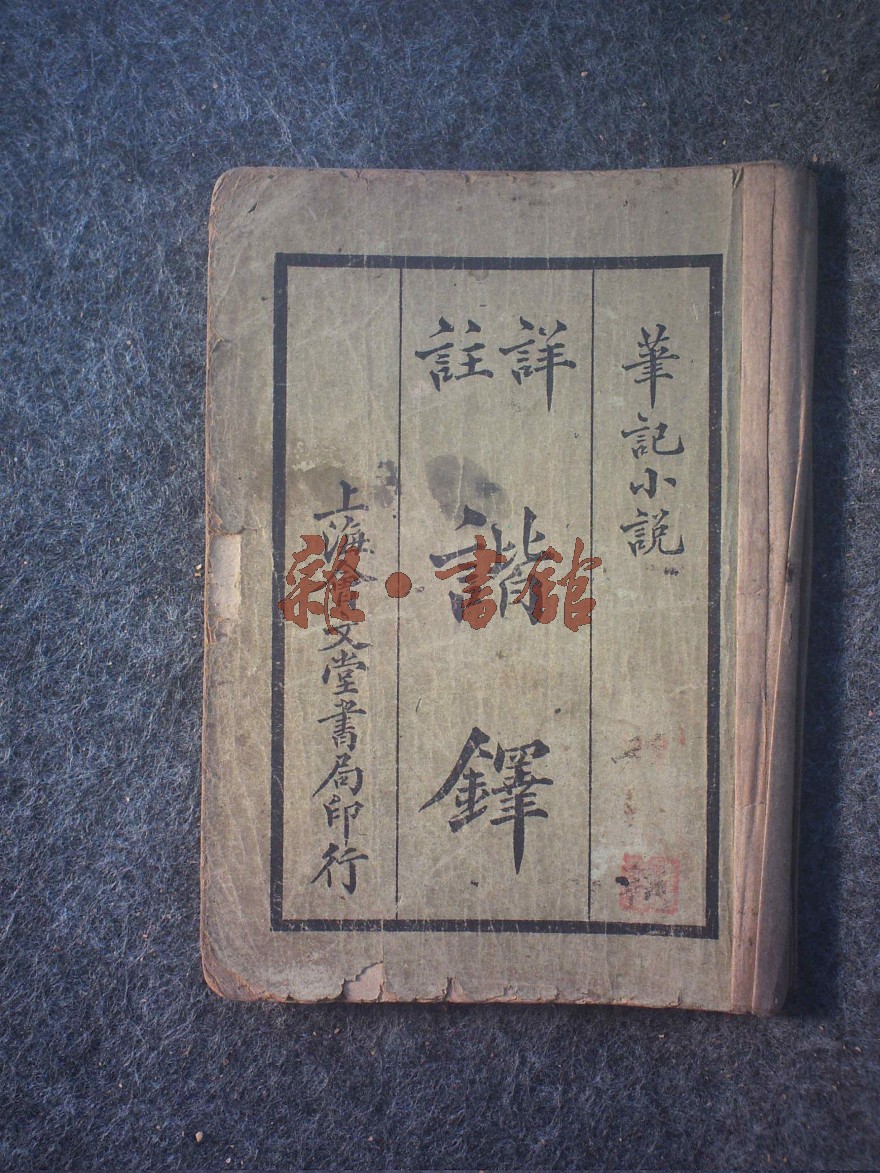 筆記小説
詳註
諧鐸
上海會文堂書局印行
雜·書館